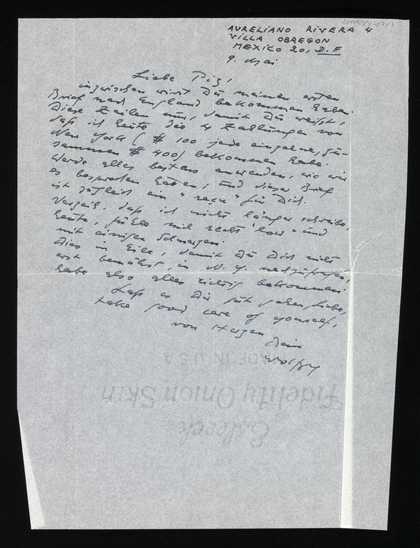 AURELIANO RIVERA 4
VILLA OBREGON
MEXICO 20, D.F
9. Mai
Liebe Piz,
inzwischen wirst Du meinen ersten
Brief nach England bekommen haben.
Diese Zeilen nur, damit Du weisst,
dass ich heute die 4 Zahlungen von
New York ($ 100 jede einzelne, zu-
sammen $ 400) bekommen habe.
Werde alles bestens anwenden, wie wir
es besprochen haben, und dieser Brief
ist zugleich ein "" für Dich.
Verzeih, dass ich nicht länger schreibe,
heute, fühle mich recht "low" und
mit einigen Schmerzen.
Dies in Eile, damit Du Dich nicht
erst bemühst, in N.Y. nachzufragen,
habe also alles richtig bekommen.
Lass es Dir gut gehen, Liebe,
take good care of yourself,
von Herzen Dein
Wolfg
MADE IN U.S.A.
Fidelity Onion Skin
Eaton's